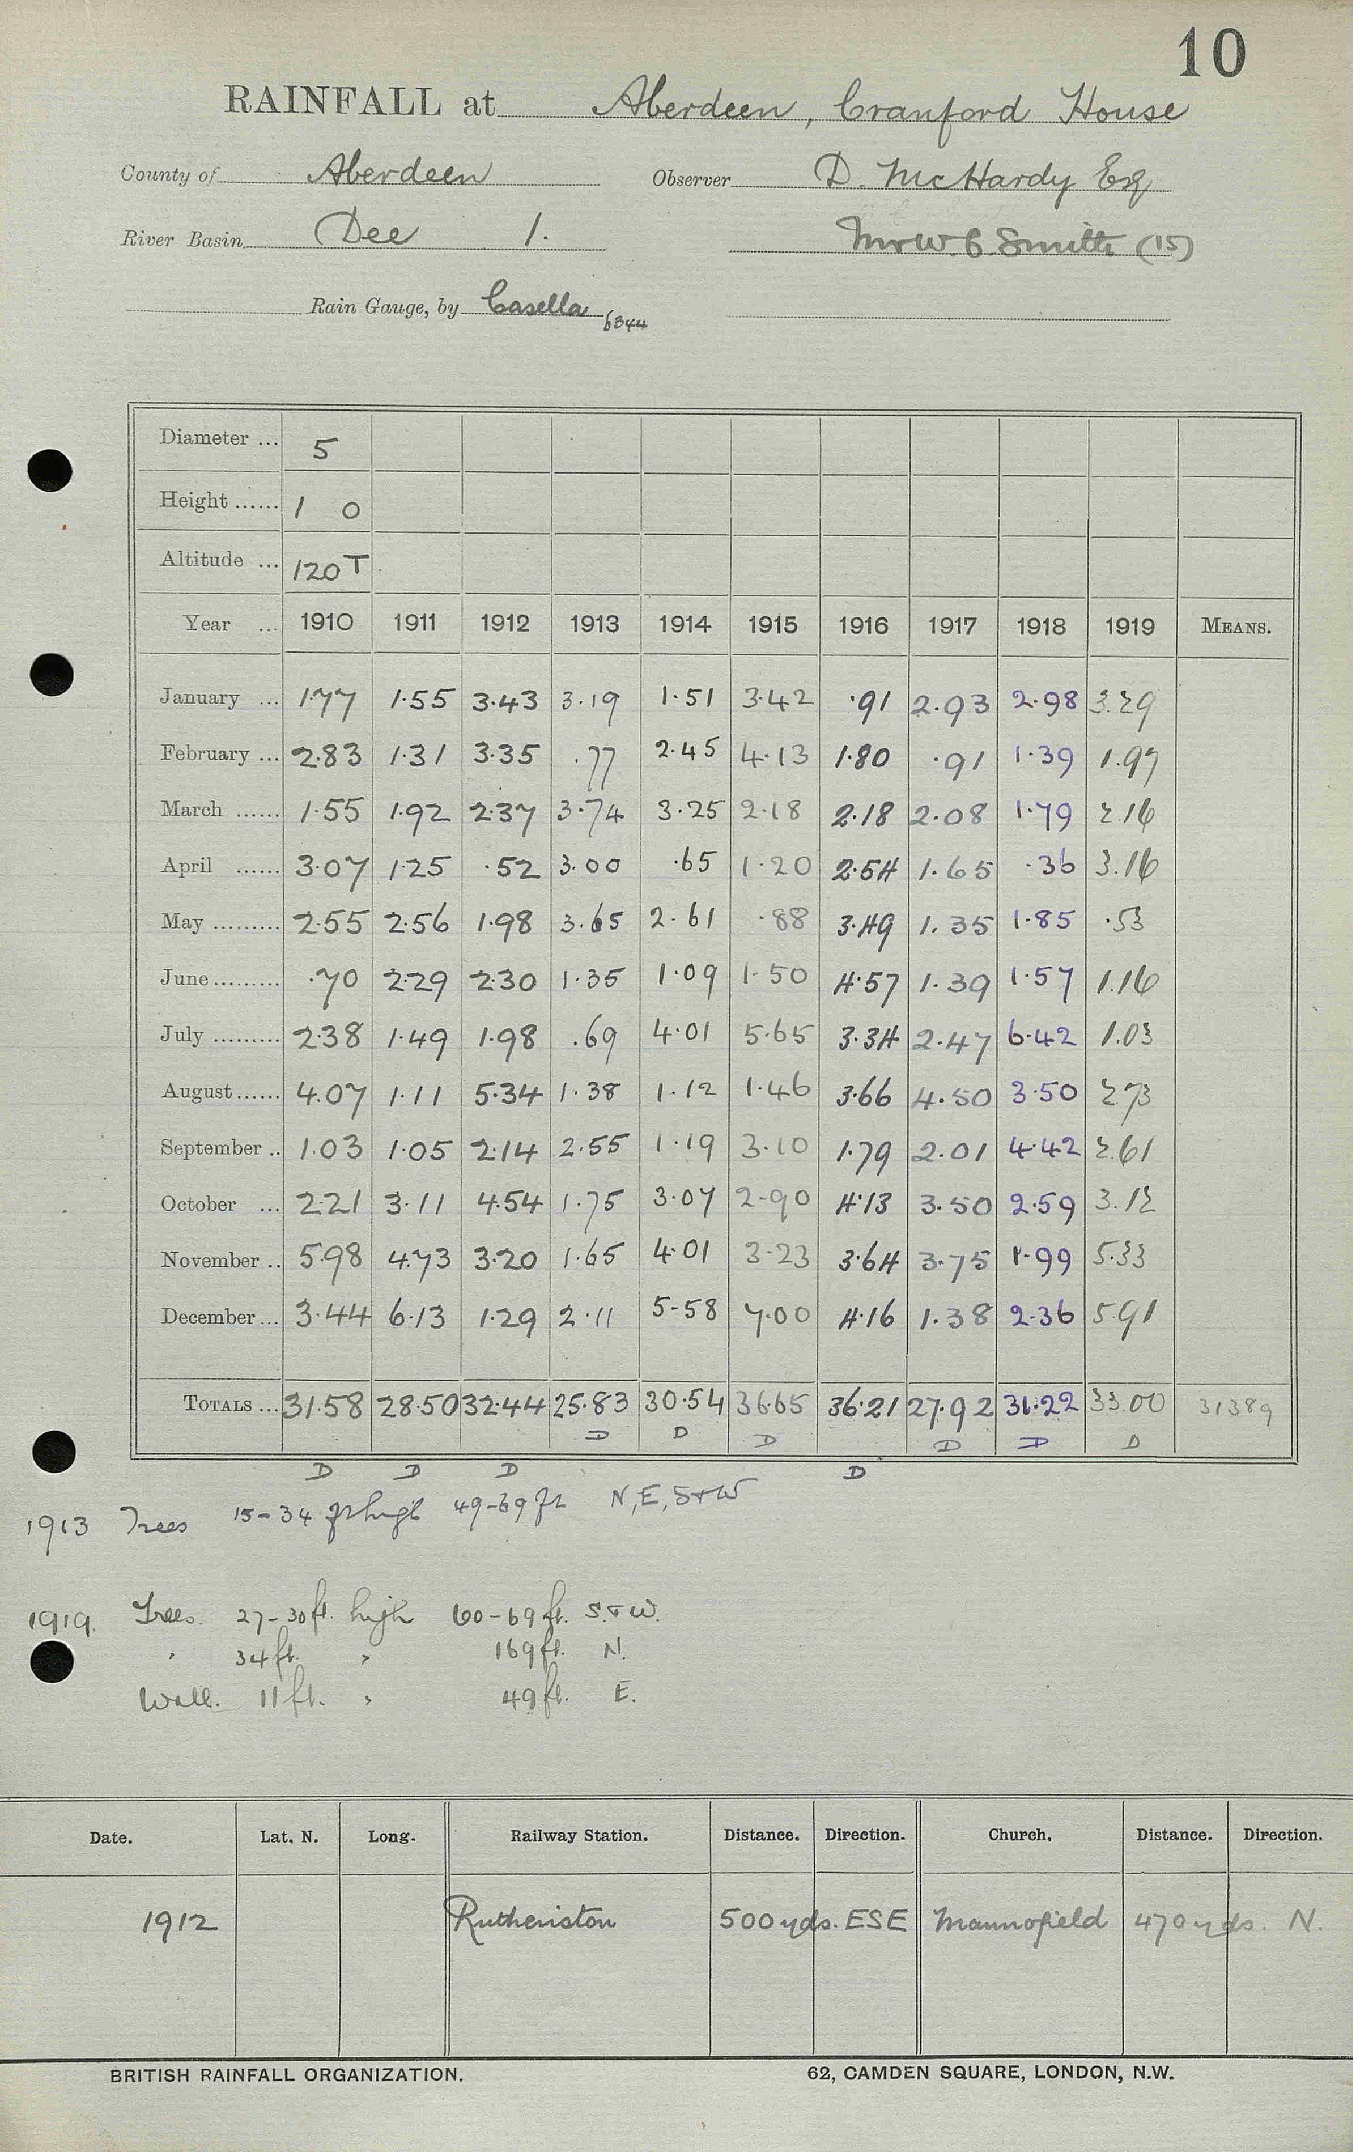 10
RAINFALL at Aberdeen, Cranford House
County of Aberdeen Observer D. McHardy Esq
River Basin Dee 1. Mr W. C. Smith (15)
Rain Gauge, by Casella 6344
Diameter ... 5
Height ...... 1 0
Altitude ... 120 T
Year ... 1910 1911 1912 1913 1914 1915 1916 1917 1918 1919 MEANS.
January ... 1.77 1.55 3.43 3.19 1.51 3.42 .91 2.93 2.98 3.29
February ... 2.83 1.31 3.35 .77 2.45 4.13 1.80 .91 1.39 1.97
March ...... 1.55 1.92 2.37 3.74 3.25 2.18 2.18 2.08 1.79 2.16
April ...... 3.07 1.25 .52 3.00 .65 1.20 2.54 1.65 .36 3.16
May ......... 2.55 2.56 1.98 3.65 2.61 .88 3.49 1.35 1.85 .53
June ......... .70 2.29 2.30 1.35 1.09 1.50 4.57 1.39 1.57 1.16
July ......... 2.38 1.49 1.98 .69 4.01 5.65 3.34 2.47 6.42 1.03
August ...... 4.07 1.11 5.34 1.38 1.12 1.46 3.66 4.50 3.50 2.73
September .. 1.03 1.05 2.14 2.55 1.19 3.10 1.79 2.01 4.42 2.61
October ... 2.21 3.11 4.54 1.75 3.07 2.90 4.13 3.50 2.59 3.12
November .. 5.98 4.73 3.20 1.65 4.01 3.23 3.64 3.75 1.99 5.33
December ... 3.44 6.13 1.29 2.11 5.58 7.00 4.16 1.38 2.36 5.91
TOTALS ... 31.58 28.50 32.44 25.83 30.54 36.65 36.21 27.92 31.22 33.00 31389
D D D D D D
D D D D
1913 Trees 15-34 ft high 49-69 ft N, E, S & W
1919. Trees. 27-30 ft. high 60-69 ft. S. & W.
" 34 ft. " 169 ft. N.
Wall. 11 ft. " 49 ft. E.
Date. Lat. N. Long. Railway Station. Distance. Direction. Church. Distance. Direction.
1912 Ruthenston 500 yds. ESE Mannofield 470 yds. N.
BRITISH RAINFALL ORGANIZATION. 62, CAMDEN SQUARE, LONDON, N.W.